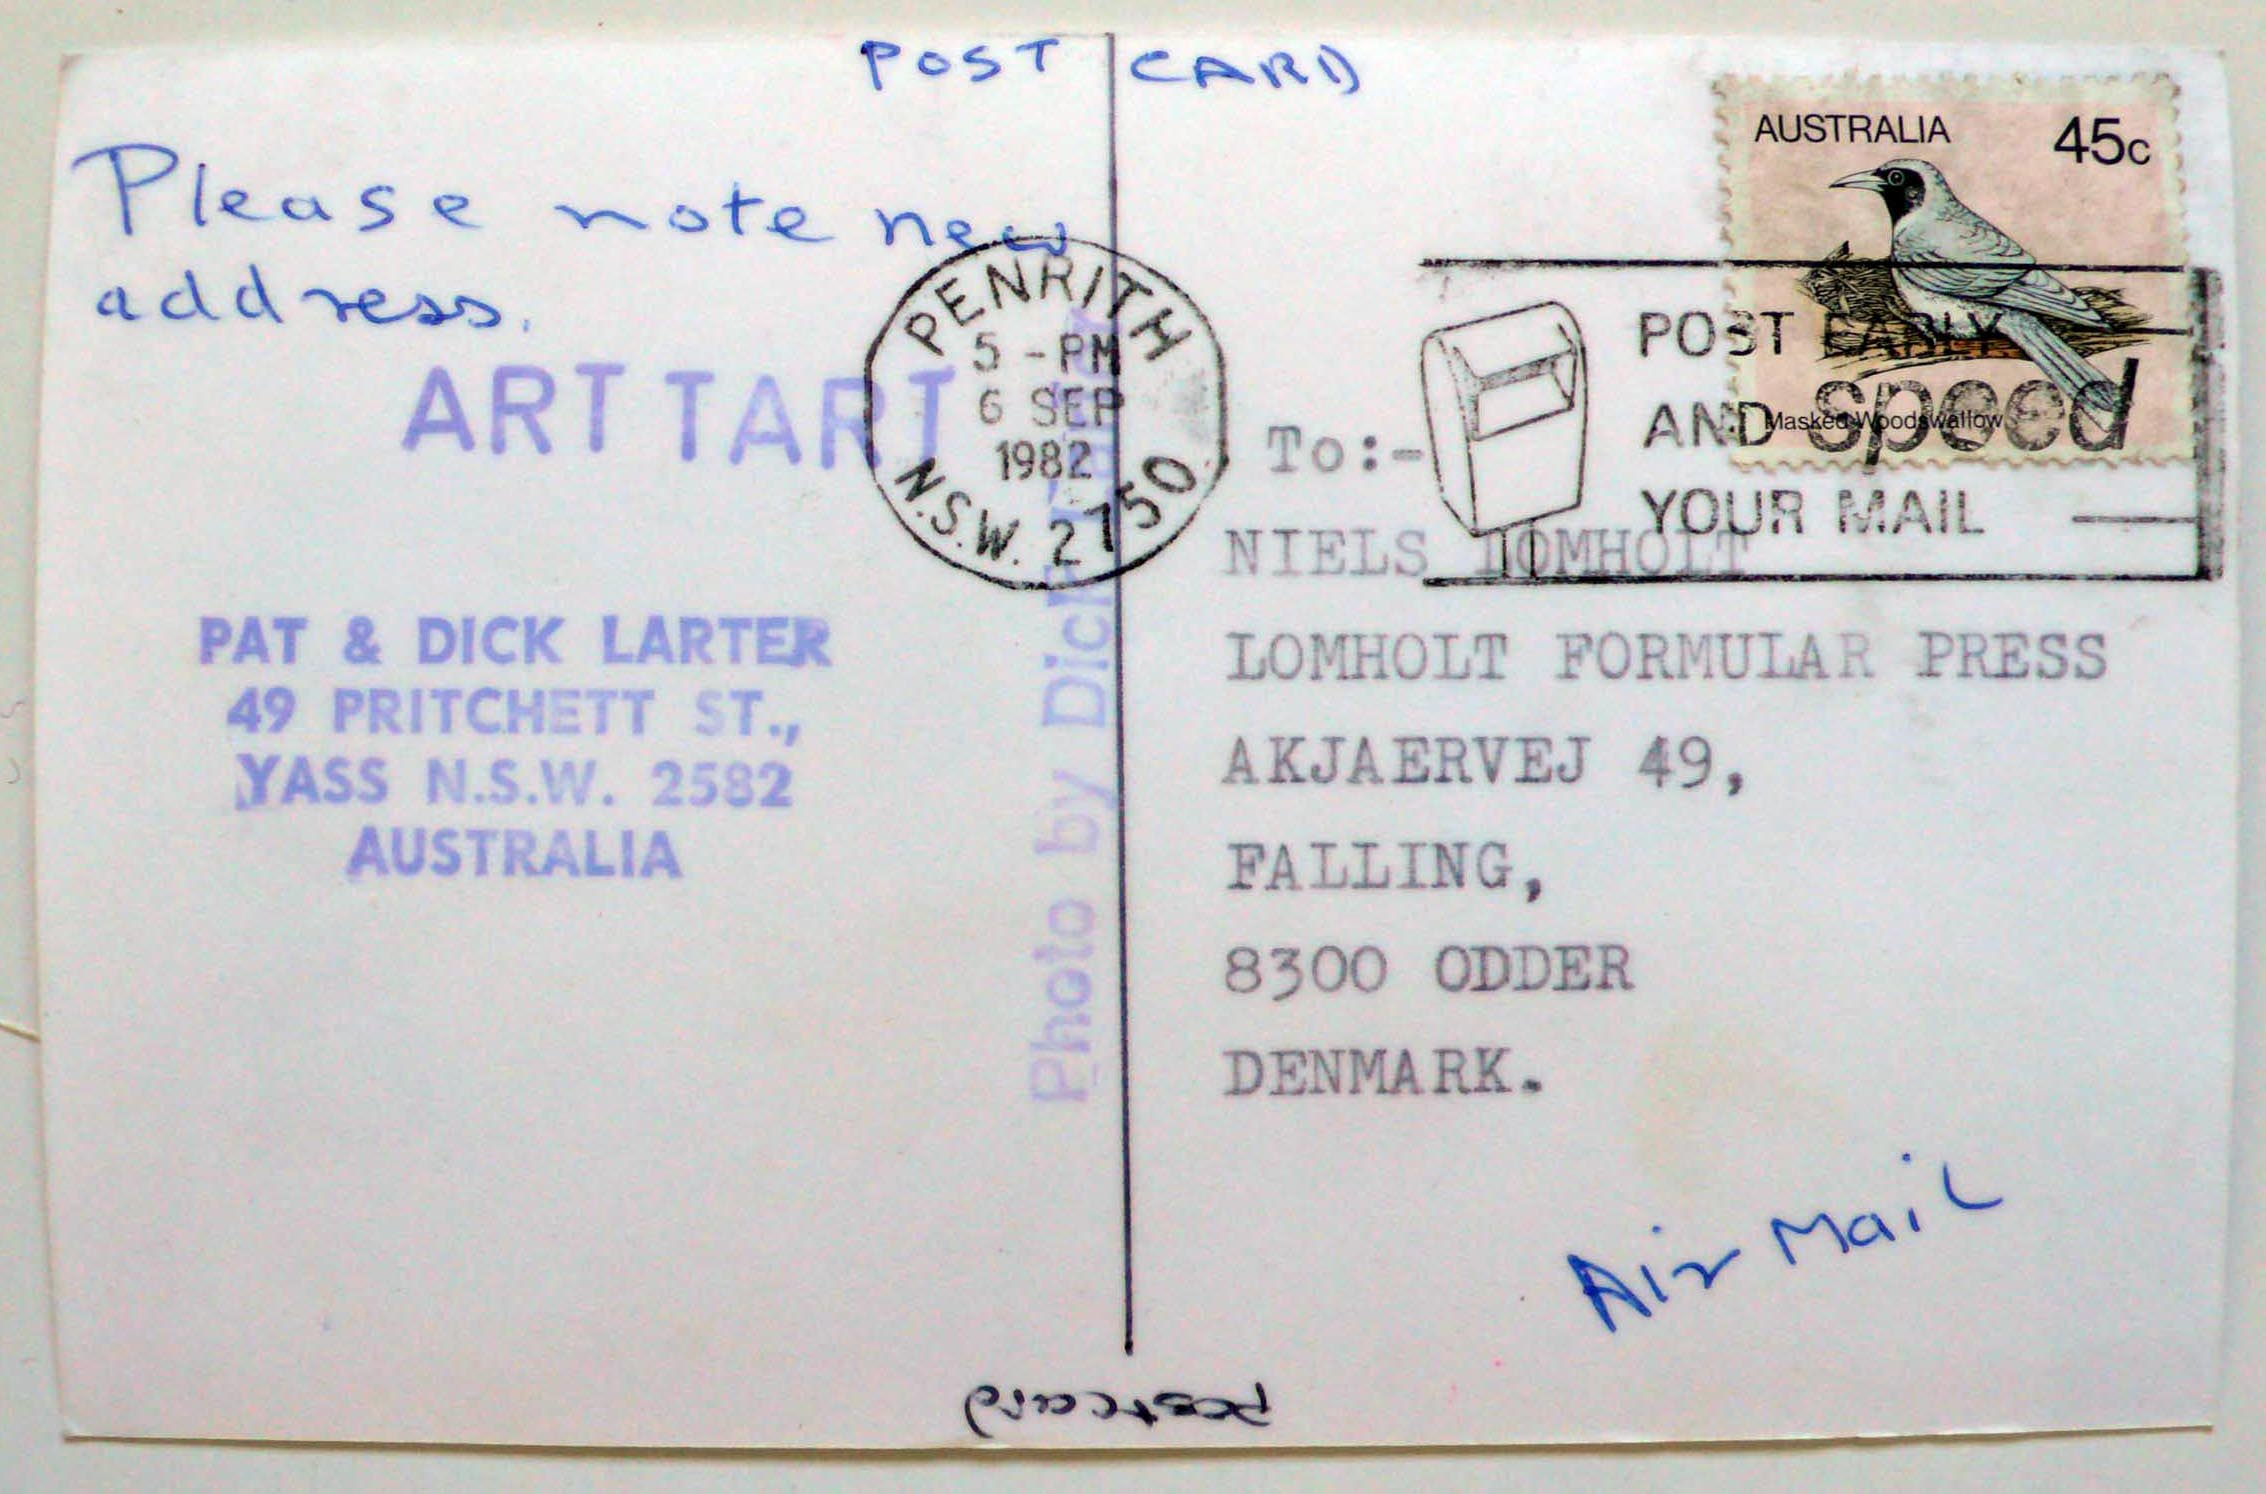 POST CARD
Please note new
address.
ART TART
PAT & DICK LARTER
49 PRITCHETT ST.,
YASS N.S.W. 2582
AUSTRALIA
Photo by Dick Larter
PENRITH
5 - PM
6 SEP
1982
N.S.W. 2750
AUSTRALIA 45c
Masked Woodswallow
POST EARLY
AND speed
YOUR MAIL
To:-
NIELS LOMHOLT
LOMHOLT FORMULAR PRESS
AKJAERVEJ 49,
FALLING,
8300 ODDER
DENMARK.
Air Mail
postcard